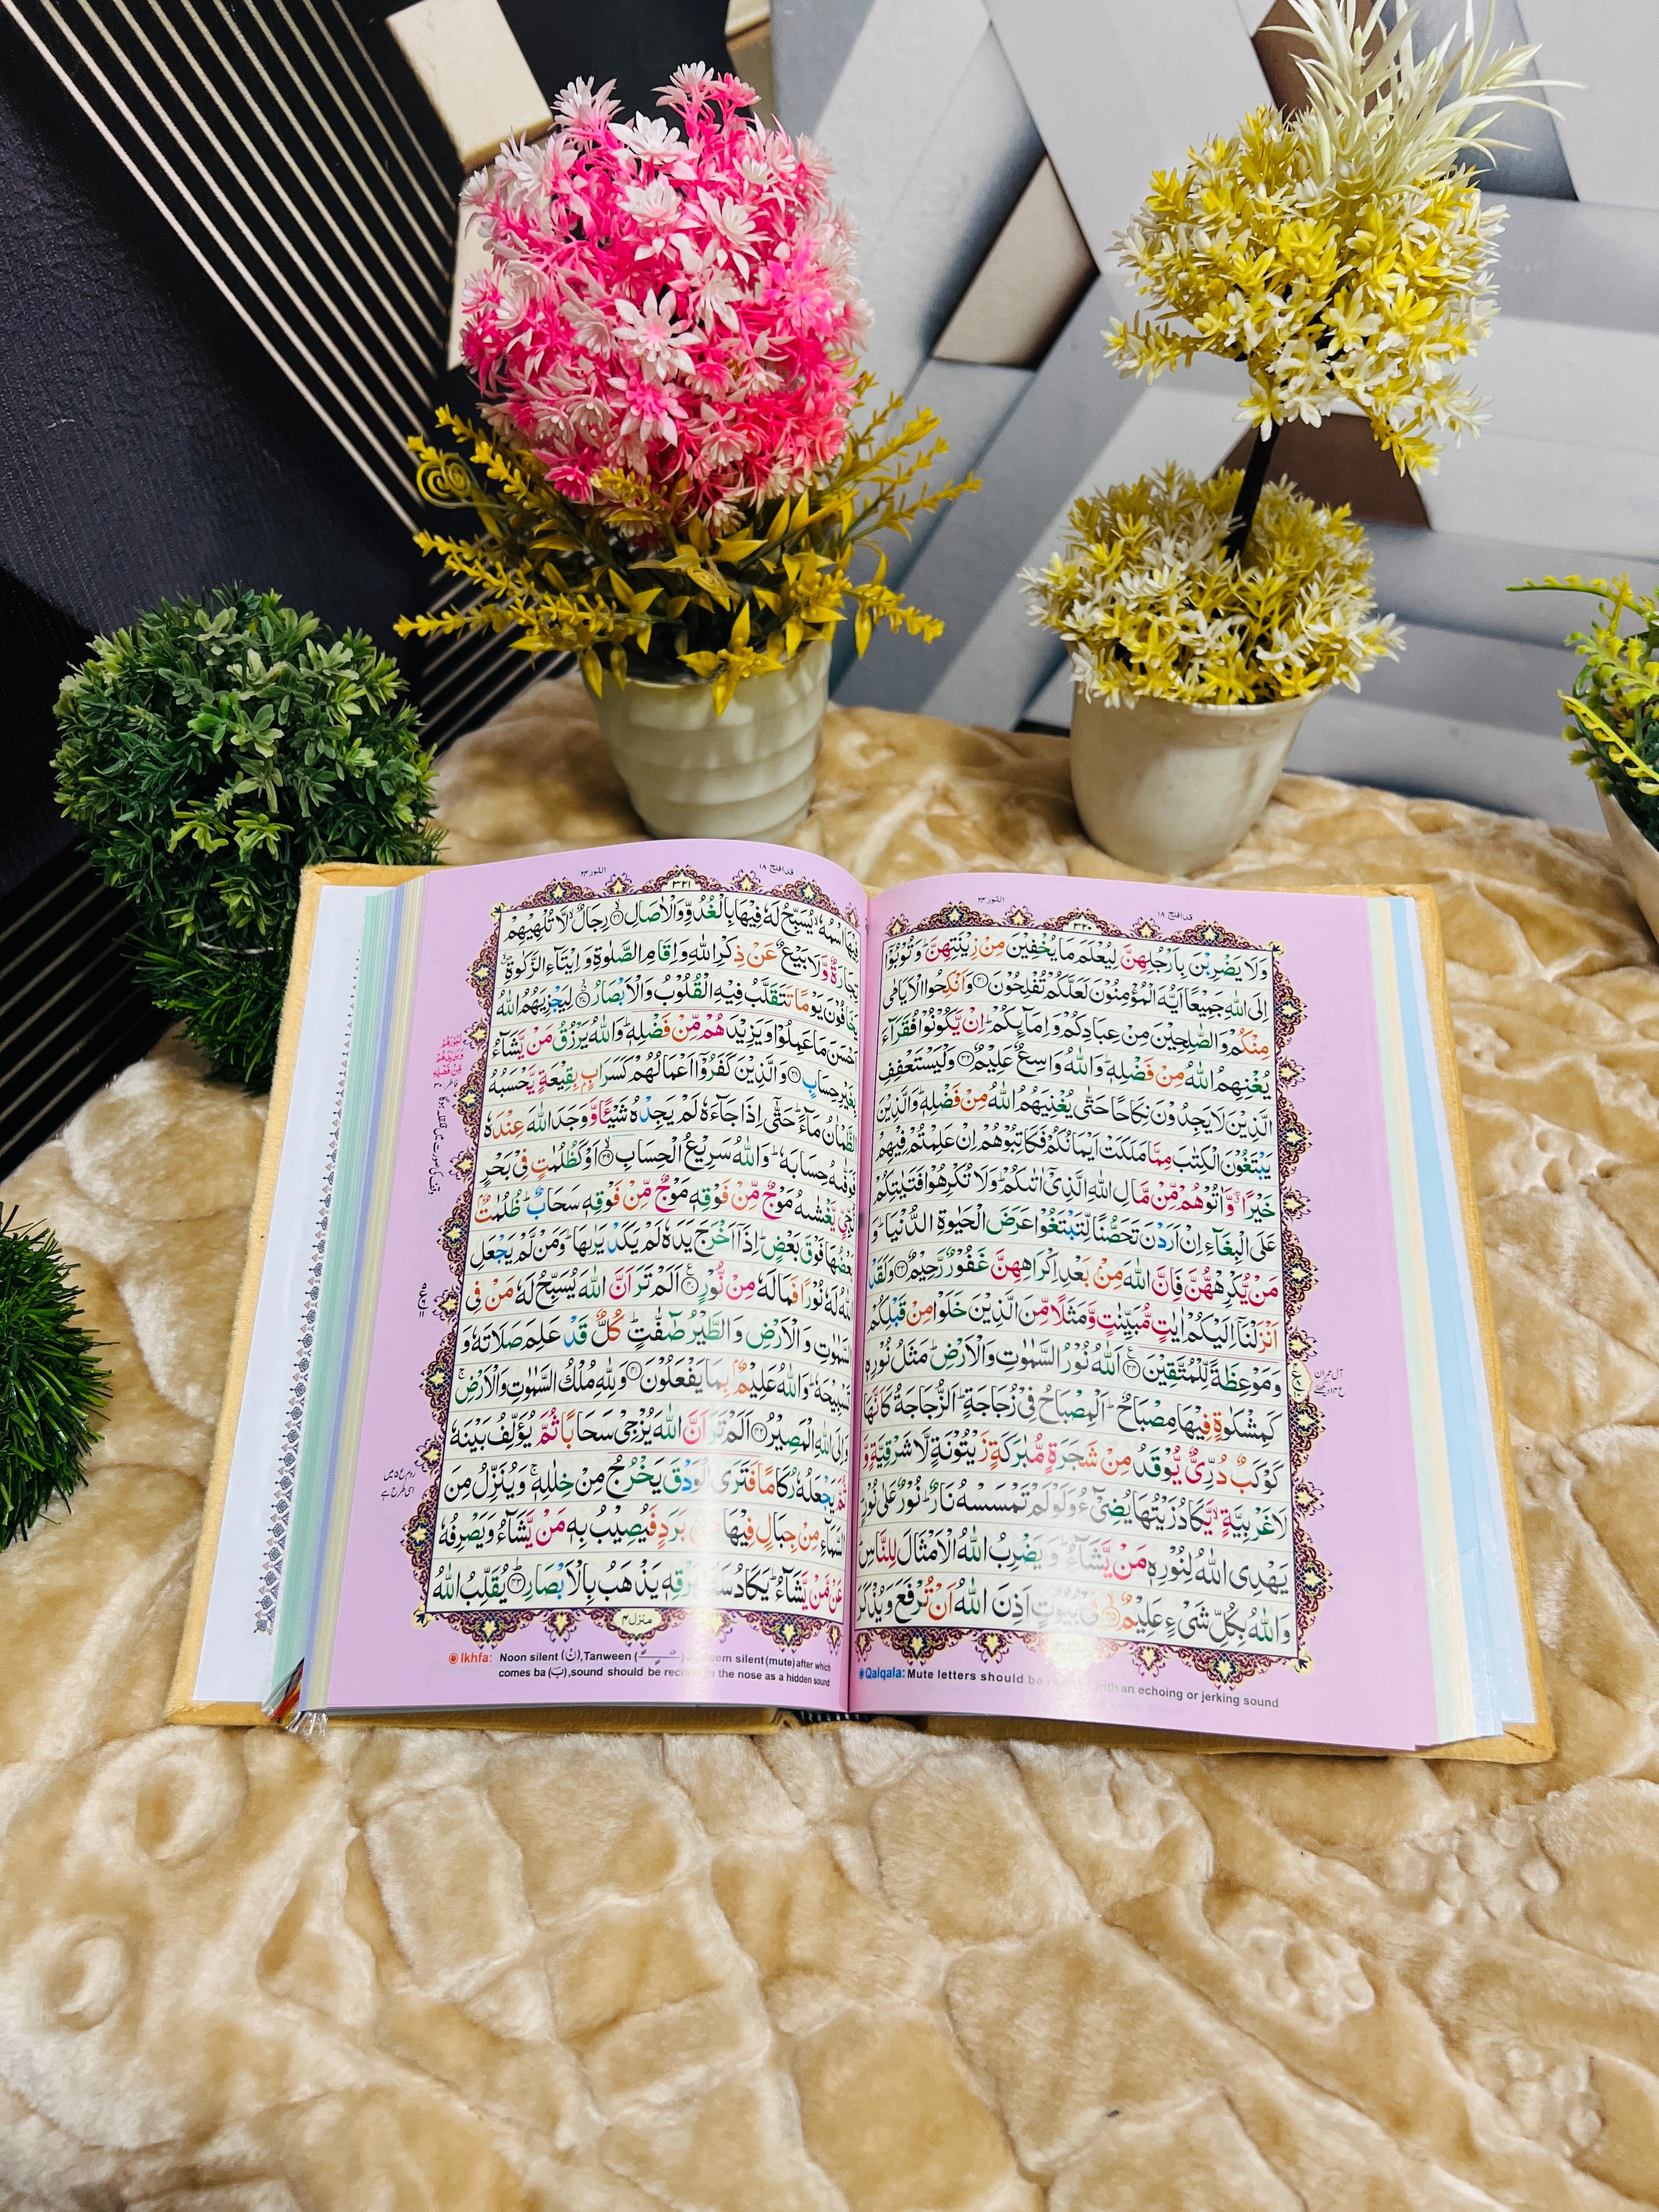 قد افلح ۱۸
النور ۲۴
۳۲۰
وَلَا يَضْرِبْنَ بِاَرْجُلِهِنَّ لِيُعْلَمَ مَا يُخْفِيْنَ مِنْ زِيْنَتِهِنَّ ؕ وَتُوْبُوْۤا
اِلَى اللّٰهِ جَمِيْعًا اَيُّهَ الْمُؤْمِنُوْنَ لَعَلَّكُمْ تُفْلِحُوْنَ ۝۳۱ وَاَنْكِحُوا الْاَيَامٰى
مِنْكُمْ وَالصّٰلِحِيْنَ مِنْ عِبَادِكُمْ وَاِمَآئِكُمْ ؕ اِنْ يَّكُوْنُوْا فُقَرَآءَ
يُغْنِهِمُ اللّٰهُ مِنْ فَضْلِهٖ ؕ وَاللّٰهُ وَاسِعٌ عَلِيْمٌ ۝۳۲ وَلْيَسْتَعْفِفِ
الَّذِيْنَ لَا يَجِدُوْنَ نِكَاحًا حَتّٰى يُغْنِيَهُمُ اللّٰهُ مِنْ فَضْلِهٖ ؕ وَالَّذِيْنَ
يَبْتَغُوْنَ الْكِتٰبَ مِمَّا مَلَكَتْ اَيْمَانُكُمْ فَكَاتِبُوْهُمْ اِنْ عَلِمْتُمْ فِيْهِمْ
خَيْرًا ۖ وَّاٰتُوْهُمْ مِّنْ مَّالِ اللّٰهِ الَّذِيْۤ اٰتٰىكُمْ ؕ وَلَا تُكْرِهُوْا فَتَيٰتِكُمْ
عَلَى الْبِغَآءِ اِنْ اَرَدْنَ تَحَصُّنًا لِّتَبْتَغُوْا عَرَضَ الْحَيٰوةِ الدُّنْيَا ؕ وَ
مَنْ يُّكْرِهْهُّنَّ فَاِنَّ اللّٰهَ مِنْۢ بَعْدِ اِكْرَاهِهِنَّ غَفُوْرٌ رَّحِيْمٌ ۝۳۳ وَلَقَدْ
اَنْزَلْنَاۤ اِلَيْكُمْ اٰيٰتٍ مُّبَيِّنٰتٍ وَّمَثَلًا مِّنَ الَّذِيْنَ خَلَوْا مِنْ قَبْلِكُمْ
وَمَوْعِظَةً لِّلْمُتَّقِيْنَ ۝۳۴ اَللّٰهُ نُوْرُ السَّمٰوٰتِ وَالْاَرْضِ ؕ مَثَلُ نُوْرِهٖ
كَمِشْكٰوةٍ فِيْهَا مِصْبَاحٌ ؕ اَلْمِصْبَاحُ فِيْ زُجَاجَةٍ ؕ اَلزُّجَاجَةُ كَاَنَّهَا
كَوْكَبٌ دُرِّيٌّ يُّوْقَدُ مِنْ شَجَرَةٍ مُّبٰرَكَةٍ زَيْتُوْنَةٍ لَّا شَرْقِيَّةٍ وَّ
لَا غَرْبِيَّةٍ ۙ يَّكَادُ زَيْتُهَا يُضِيْٓءُ وَلَوْ لَمْ تَمْسَسْهُ نَارٌ ؕ نُوْرٌ عَلٰى نُوْرٍ ؕ
يَهْدِى اللّٰهُ لِنُوْرِهٖ مَنْ يَّشَآءُ ؕ وَيَضْرِبُ اللّٰهُ الْاَمْثَالَ لِلنَّاسِ ؕ
وَاللّٰهُ بِكُلِّ شَيْءٍ عَلِيْمٌ ۝۳۵ فِيْ بُيُوْتٍ اَذِنَ اللّٰهُ اَنْ تُرْفَعَ وَيُذْكَرَ
Qalqala: Mute letters should be with an echoing or jerking sound
قد افلح ۱۸
النور ۲۴
۳۲۱
فِيْهَا اسْمُهٗ ۙ يُسَبِّحُ لَهٗ فِيْهَا بِالْغُدُوِّ وَالْاٰصَالِ ۝۳۶ رِجَالٌ ۙ لَّا تُلْهِيْهِمْ
تِجَارَةٌ وَّلَا بَيْعٌ عَنْ ذِكْرِ اللّٰهِ وَاِقَامِ الصَّلٰوةِ وَاِيْتَآءِ الزَّكٰوةِ ۙ
يَخَافُوْنَ يَوْمًا تَتَقَلَّبُ فِيْهِ الْقُلُوْبُ وَالْاَبْصَارُ ۝۳۷ لِيَجْزِيَهُمُ اللّٰهُ
اَحْسَنَ مَا عَمِلُوْا وَيَزِيْدَهُمْ مِّنْ فَضْلِهٖ ؕ وَاللّٰهُ يَرْزُقُ مَنْ يَّشَآءُ
بِغَيْرِ حِسَابٍ ۝۳۸ وَالَّذِيْنَ كَفَرُوْۤا اَعْمَالُهُمْ كَسَرَابٍۭ بِقِيْعَةٍ يَّحْسَبُهُ
الظَّمْاٰنُ مَآءً ؕ حَتّٰۤى اِذَا جَآءَهٗ لَمْ يَجِدْهُ شَيْئًا وَّوَجَدَ اللّٰهَ عِنْدَهٗ
فَوَفّٰىهُ حِسَابَهٗ ؕ وَاللّٰهُ سَرِيْعُ الْحِسَابِ ۝۳۹ اَوْ كَظُلُمٰتٍ فِيْ بَحْرٍ
لُّجِّيٍّ يَّغْشٰىهُ مَوْجٌ مِّنْ فَوْقِهٖ مَوْجٌ مِّنْ فَوْقِهٖ سَحَابٌ ؕ ظُلُمٰتٌۢ
بَعْضُهَا فَوْقَ بَعْضٍ ؕ اِذَاۤ اَخْرَجَ يَدَهٗ لَمْ يَكَدْ يَرٰىهَا ؕ وَمَنْ لَّمْ يَجْعَلِ
اللّٰهُ لَهٗ نُوْرًا فَمَا لَهٗ مِنْ نُّوْرٍ ۝۴۰ اَلَمْ تَرَ اَنَّ اللّٰهَ يُسَبِّحُ لَهٗ مَنْ فِى
السَّمٰوٰتِ وَالْاَرْضِ وَالطَّيْرُ صٰٓفّٰتٍ ؕ كُلٌّ قَدْ عَلِمَ صَلَاتَهٗ وَ
تَسْبِيْحَهٗ ؕ وَاللّٰهُ عَلِيْمٌۢ بِمَا يَفْعَلُوْنَ ۝۴۱ وَلِلّٰهِ مُلْكُ السَّمٰوٰتِ وَالْاَرْضِ ۚ
وَاِلَى اللّٰهِ الْمَصِيْرُ ۝۴۲ اَلَمْ تَرَ اَنَّ اللّٰهَ يُزْجِيْ سَحَابًا ثُمَّ يُؤَلِّفُ بَيْنَهٗ
ثُمَّ يَجْعَلُهٗ رُكَامًا فَتَرَى الْوَدْقَ يَخْرُجُ مِنْ خِلٰلِهٖ ۚ وَيُنَزِّلُ مِنَ
السَّمَآءِ مِنْ جِبَالٍ فِيْهَا بَرَدٍ فَيُصِيْبُ بِهٖ مَنْ يَّشَآءُ وَيَصْرِفُهٗ
عَنْ مَّنْ يَّشَآءُ ؕ يَكَادُ يَذْهَبُ بِالْاَبْصَارِ ۝۴۳ يُقَلِّبُ اللّٰهُ
منزل ۴
Ikhfa: Noon silent (نْ), Tanween silent (mute) after which
comes ba (بَ), sound should be in the nose as a hidden sound